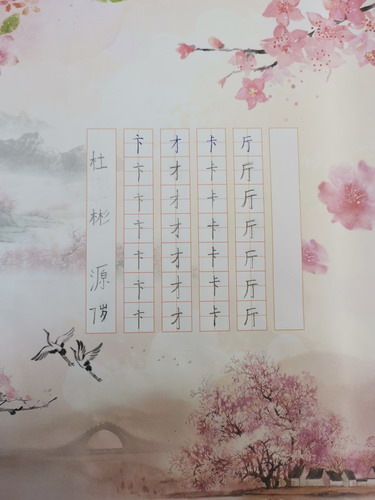 杜彬源7岁
卞卞卞卞卞卞卞
才才才才才才才
卡卡卡卡卡卡卡
斤斤斤斤斤斤斤